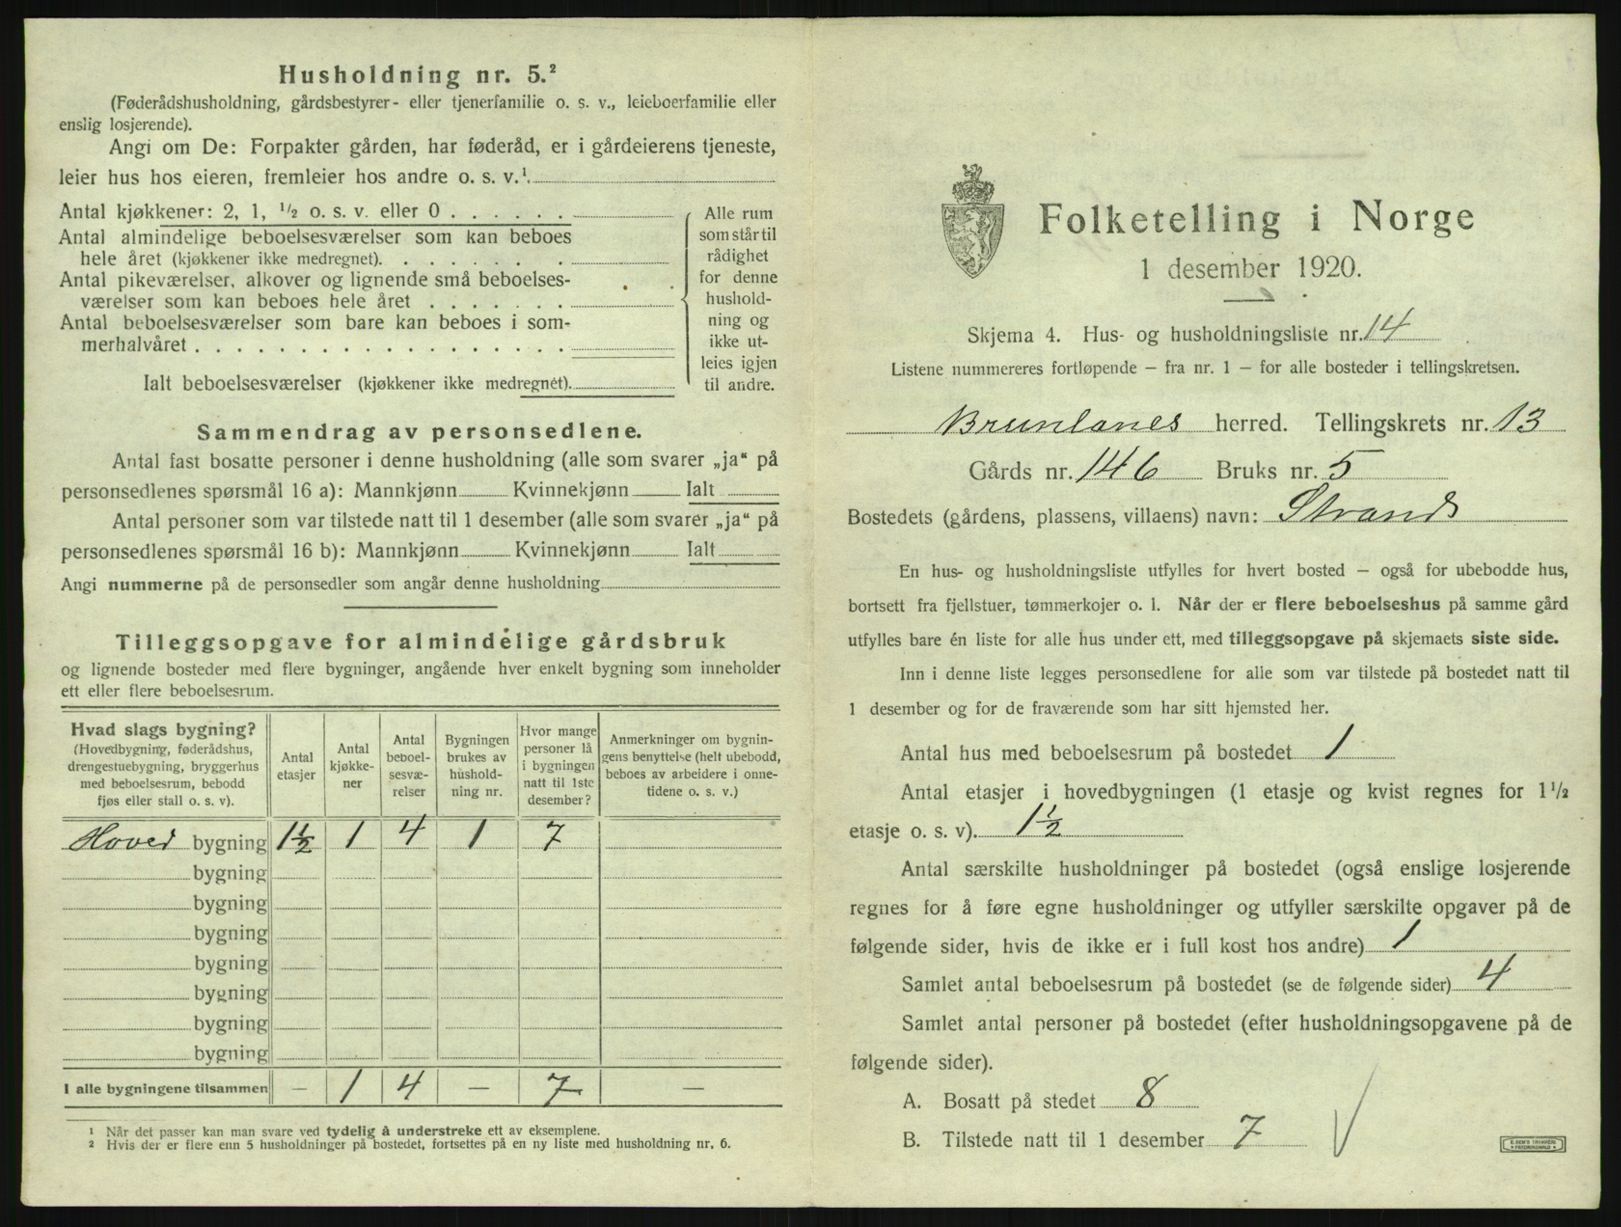 Husholdning nr. 5.²
(Føderådshusholdning, gårdsbestyrer- eller tjenerfamilie o. s. v., leieboerfamilie eller
enslig losjerende).
Angi om De: Forpakter gården, har føderåd, er i gårdeierens tjeneste,
leier hus hos eieren, fremleier hos andre o. s. v.¹.
Antal kjøkkener: 2, 1, ½ o. s. v. eller 0
Antal almindelige beboelsesværelser som kan beboes
hele året (kjøkkener ikke medregnet).
Antal pikeværelser, alkover og lignende små beboelses-
værelser som kan beboes hele året
Antal beboelsesværelser som bare kan beboes i som-
merhalvåret
Ialt beboelsesværelser (kjøkkener ikke medregnet).
Alle rum
som står til
rådighet
for denne
hushold-
ning og
ikke ut-
leies igjen
til andre.
Sammendrag av personsedlene.
Antal fast bosatte personer i denne husholdning (alle som svarer „ja“ på
personsedlenes spørsmål 16 a): Mannkjønn Kvinnekjønn Ialt
Antal personer som var tilstede natt til 1 desember (alle som svarer „ja“ på
personsedlenes spørsmål 16 b): Mannkjønn Kvinnekjønn Ialt
Angi nummerne på de personsedler som angår denne husholdning
Tilleggsopgave for almindelige gårdsbruk
og lignende bosteder med flere bygninger, angående hver enkelt bygning som inneholder
ett eller flere beboelsesrum.
Hvad slags bygning?
(Hovedbygning, føderådshus,
drengestuebygning, bryggerhus
med beboelsesrum, bebodd
fjøs eller stall o. s. v).
Antal
etasjer
Antal
kjøkke-
ner
Antal
beboel-
sesvæ-
relser
Bygningen
brukes av
hushold-
ning nr.
Hvor mange
personer lå
i bygningen
natt til 1ste
desember?
Anmerkninger om bygnin-
gens benyttelse (helt ubebodd,
beboes av arbeidere i onne-
tidene o. s. v.)
Hoved bygning 1½ 1 4 1 7
bygning
bygning
bygning
bygning
bygning
bygning
bygning
I alle bygningene tilsammen — 1 4 — 7 —
¹ Når det passer kan man svare ved tydelig å understreke ett av eksemplene.
² Hvis der er flere enn 5 husholdninger på bostedet, fortsettes på en ny liste med husholdning nr. 6.
Folketelling i Norge
1 desember 1920.
Skjema 4. Hus- og husholdningsliste nr. 14
Listene nummereres fortløpende — fra nr. 1 — for alle bosteder i tellingskretsen.
Brunlanes herred. Tellingskrets nr. 13
Gårds nr. 146 Bruks nr. 5
Bostedets (gårdens, plassens, villaens) navn: Strand
En hus- og husholdningsliste utfylles for hvert bosted — også for ubebodde hus,
bortsett fra fjellstuer, tømmerkojer o. l. Når der er flere beboelseshus på samme gård
utfylles bare én liste for alle hus under ett, med tilleggsopgave på skjemaets siste side.
Inn i denne liste legges personsedlene for alle som var tilstede på bostedet natt til
1 desember og for de fraværende som har sitt hjemsted her.
Antal hus med beboelsesrum på bostedet 1
Antal etasjer i hovedbygningen (1 etasje og kvist regnes for 1½
etasje o. s. v). 1½
Antal særskilte husholdninger på bostedet (også enslige losjerende
regnes for å føre egne husholdninger og utfyller særskilte opgaver på de
følgende sider, hvis de ikke er i full kost hos andre) 1
Samlet antal beboelsesrum på bostedet (se de følgende sider) 4
Samlet antal personer på bostedet (efter husholdningsopgavene på de
følgende sider).
A. Bosatt på stedet 8
B. Tilstede natt til 1 desember 7